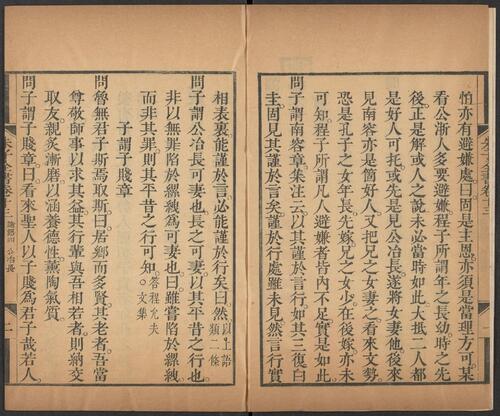 怕亦有避嫌處曰固是主恩亦須是當理方可某
看公浙人多要避嫌程子所謂年之長幼時之先
後正是解或人之說未必當時如此大抵二人都
是好人可托或先是見公冶長遂將女妻他後來
見南容亦是箇好人又把兄之女妻之看來文勢
恐是孔子之女年長先嫁兄之女少在後嫁亦未
可知程子所謂凡人避嫌者皆內不足實是如此
問子謂南容章集注云以其謹於言行如其三復白
圭固見其謹於言矣謹於行處雖未見然言行實
朱子全書卷十三
相表裏能謹於言必能謹於行矣曰然以上語類二條
問子謂公冶長可妻也長之可妻以其平昔之行也
非以無罪陷於縲絏為可妻也曰雖嘗陷於縲絏
而非其罪則其平昔之行可知答程允夫文集
子謂子賤章
問魯無君子斯焉取斯曰居鄉而多賢其老者吾當
尊敬師事以求其益其行輩與吾相若者則納交
取友親炙漸磨以涵養德性薰陶氣質
問子賤章曰看來聖人以子賤為君子哉若人
朱子全書卷十三 論語四 公冶長